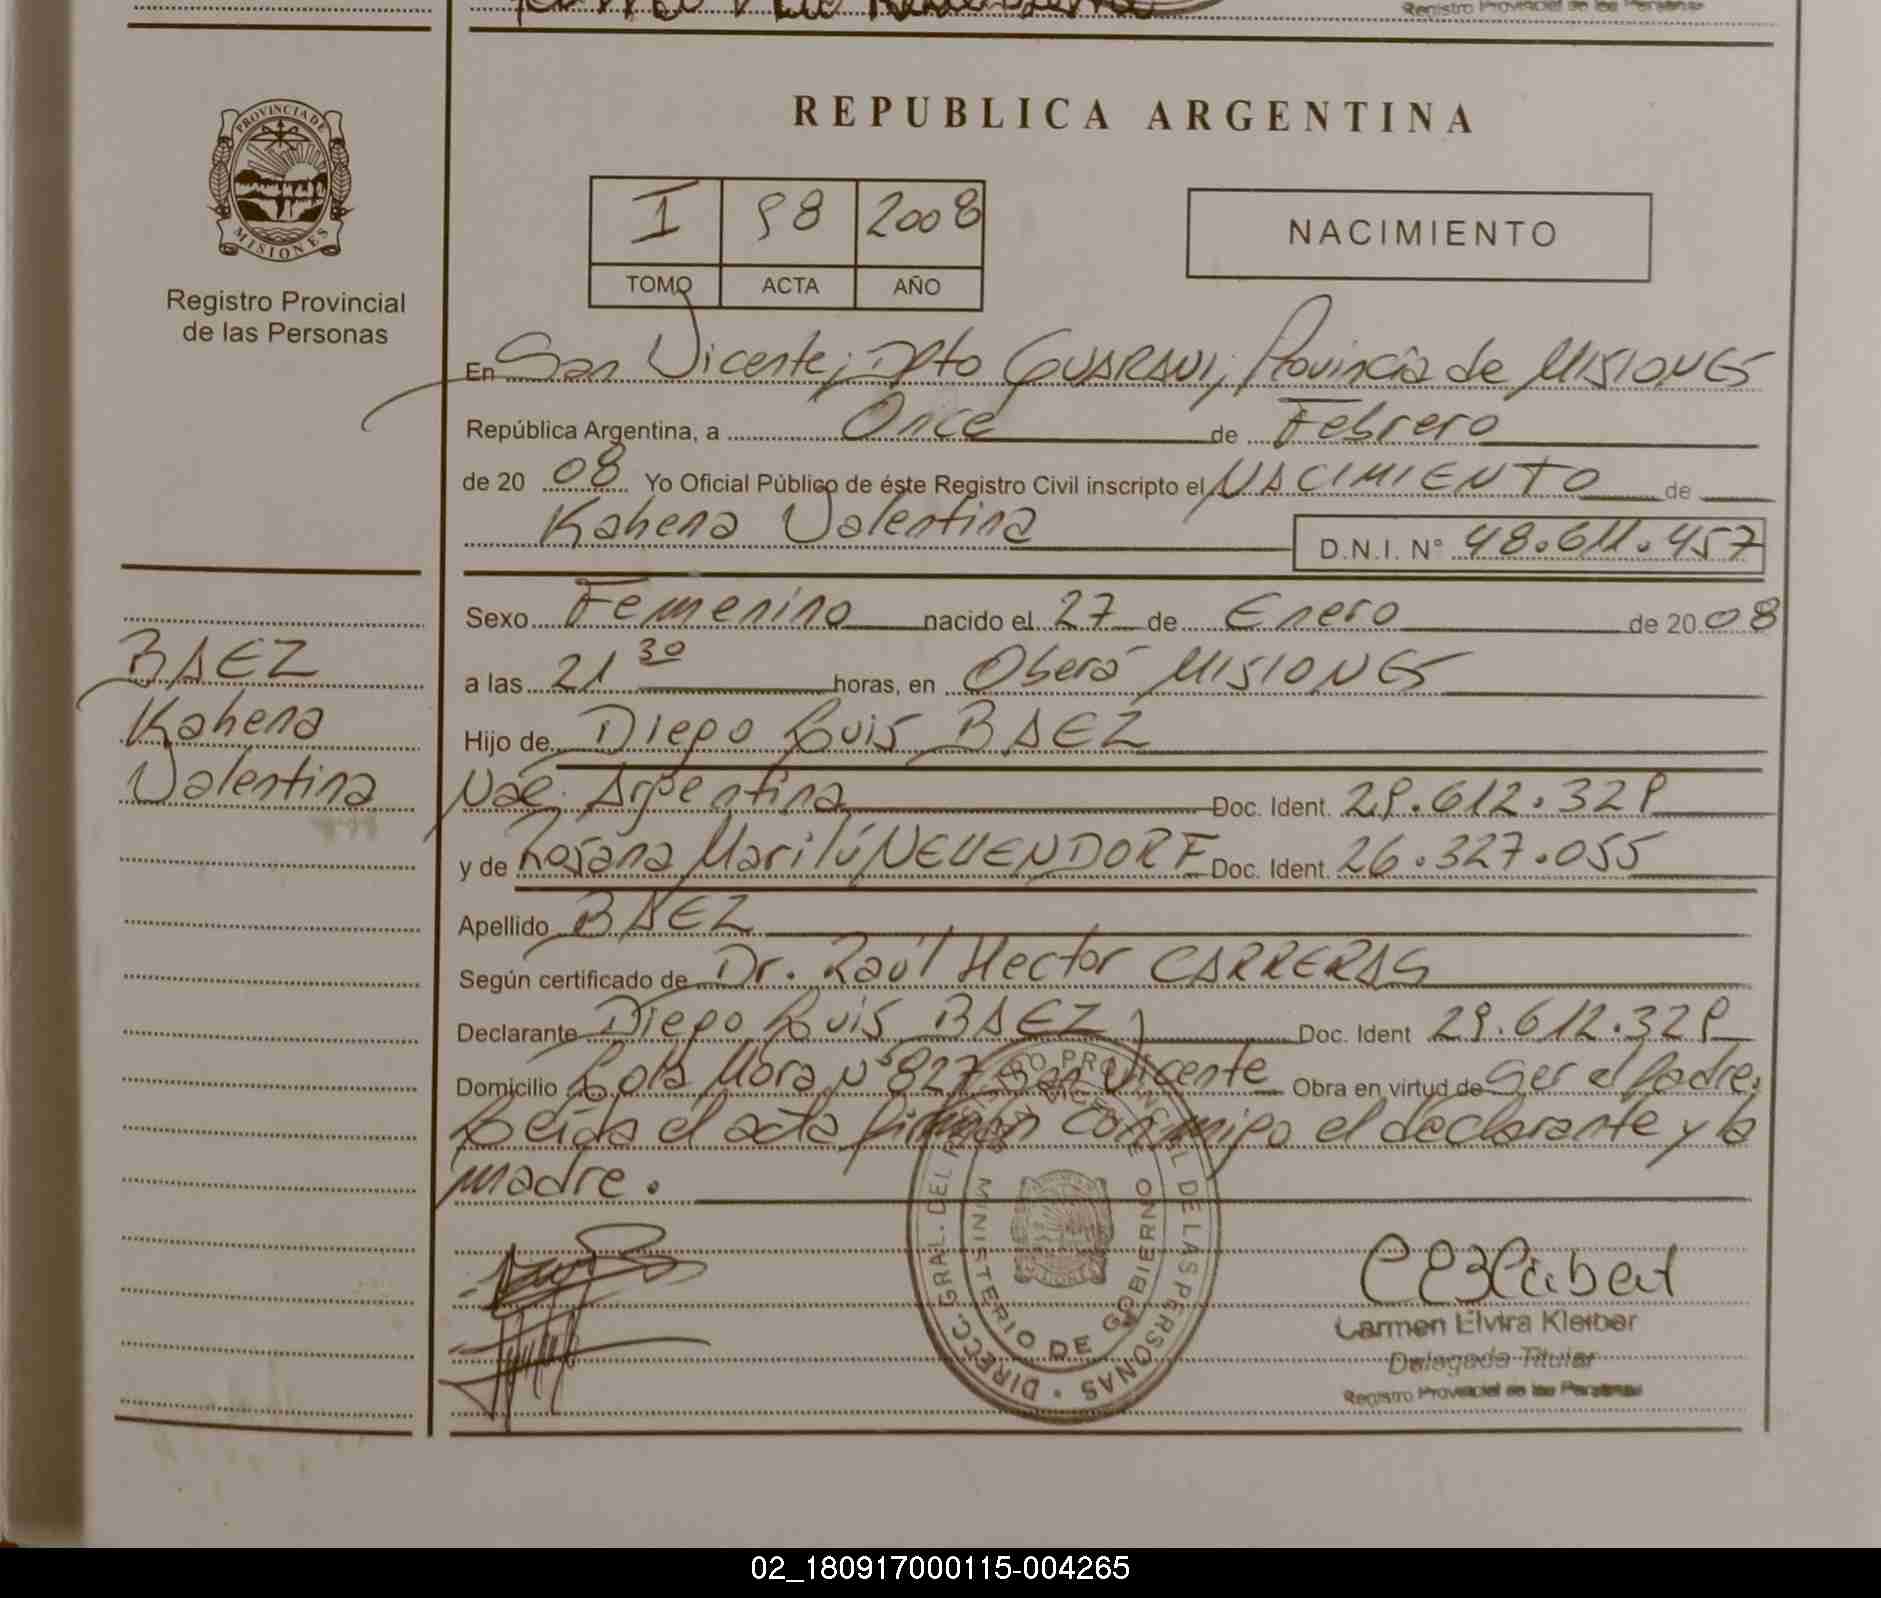 Registro Provincial de las Personas
PROVINCIA DE
MISIONES
Registro Provincial
de las Personas
REPUBLICA ARGENTINA
I 98 2008
TOMO ACTA AÑO
NACIMIENTO
En San Vicente, Dpto GUARANI, Provincia de MISIONES
República Argentina, a Once de Febrero
de 2008 Yo Oficial Público de éste Registro Civil inscripto el NACIMIENTO de
Kahena Valentina D.N.I. N° 48.611.457
Sexo Femenino nacido el 27 de Enero de 2008
a las 21 30 horas, en Oberá MISIONES
Hijo de Diego Luis BAEZ
Nac. Argentina Doc. Ident. 29.612.329
y de Rosana Marilú NEUENDORF Doc. Ident. 26.327.055
Apellido BAEZ
Según certificado de Dr. Raúl Hector CARRERAS
Declarante Diego Luis BAEZ Doc. Ident 29.612.329
Domicilio Lola Mora N° 827 San Vicente Obra en virtud de Ser el Padre.
Leida el acta firman conmigo el declarante y la
madre.
BAEZ
Kahena
Valentina
DIRECC. GRAL. DEL REGISTRO PROVINCIAL DE LAS PERSONAS
SAN VICENTE
MINISTERIO DE GOBIERNO
Carmen Elvira Kleiber
Delegada Titular
Registro Provincial de las Personas
02_180917000115-004265